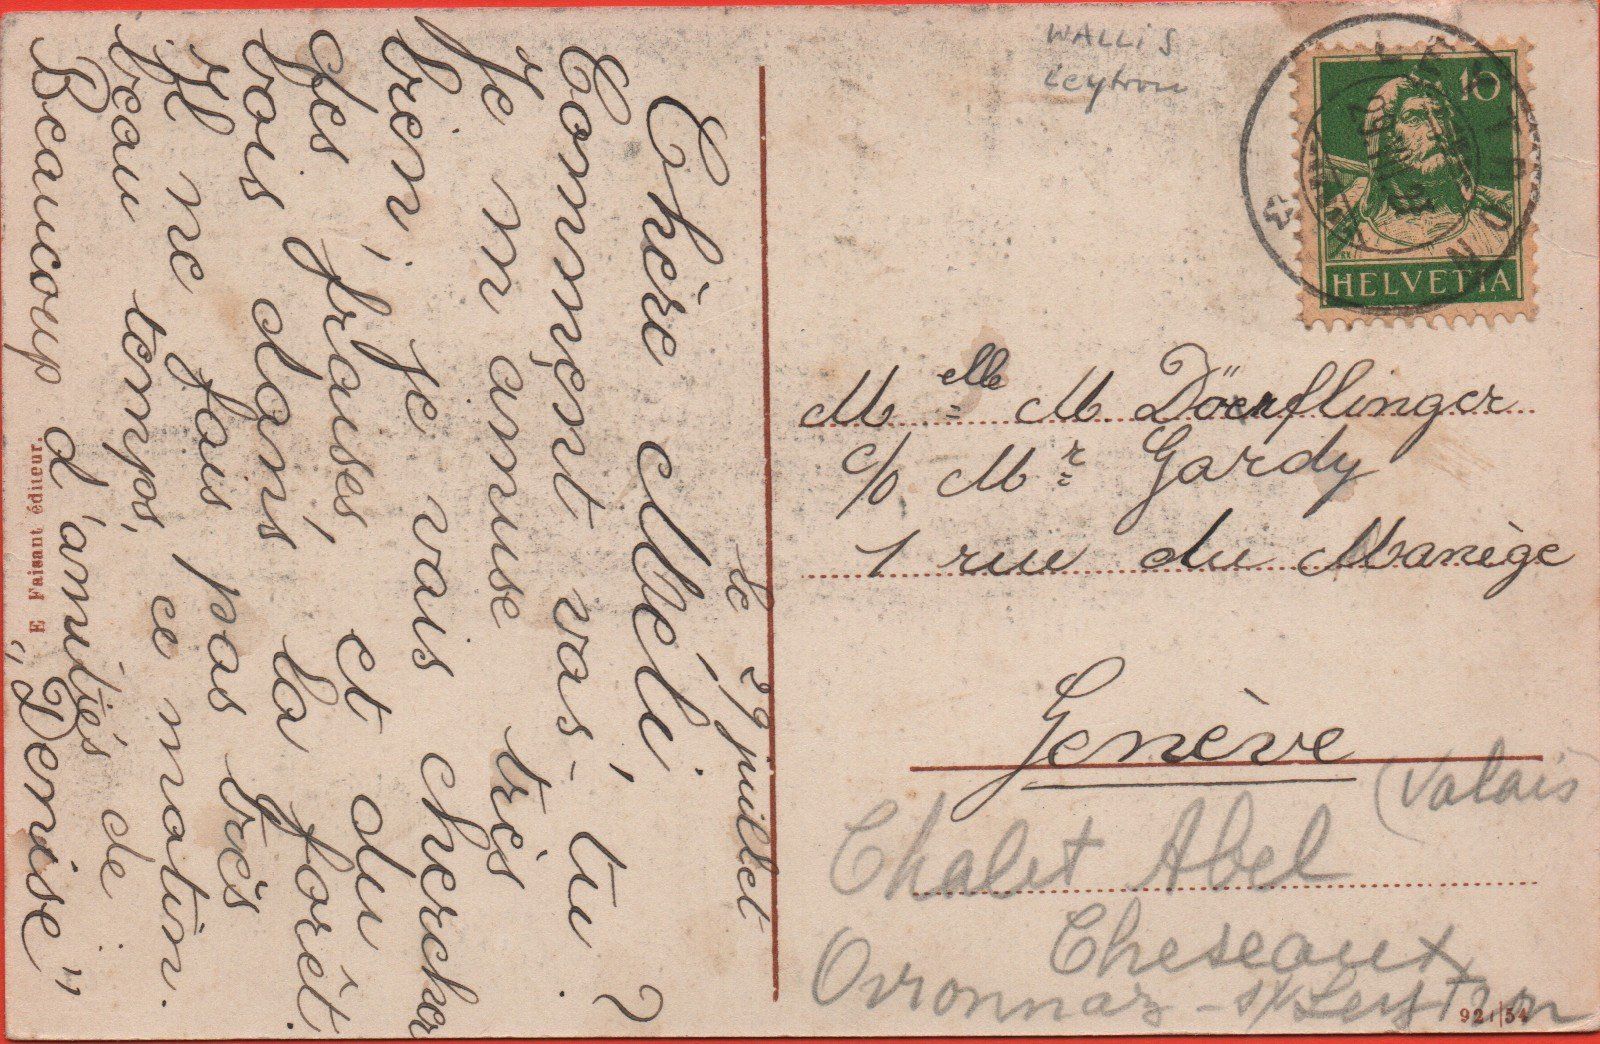 le 29 juillet
Chère Meli,
Comment vas-tu ?
Je m'amuse très
bien, je vais chercher
des fraises, et du
bois dans la forêt.
Il ne fais pas très
beau temps, ce matin.
Beaucoup d'amitiés de
"Denise"
E Faisant éditeur.
WALLIS
Leytron
LEYTRON
29.VII.
10
HELVETIA
Melle M Döerflinger
c/o Mr Gardy
1 rue du Manège
Genève
(Valais
Chalet Abel
Cheseaux
Ovronnaz - s/Leytron
921|54